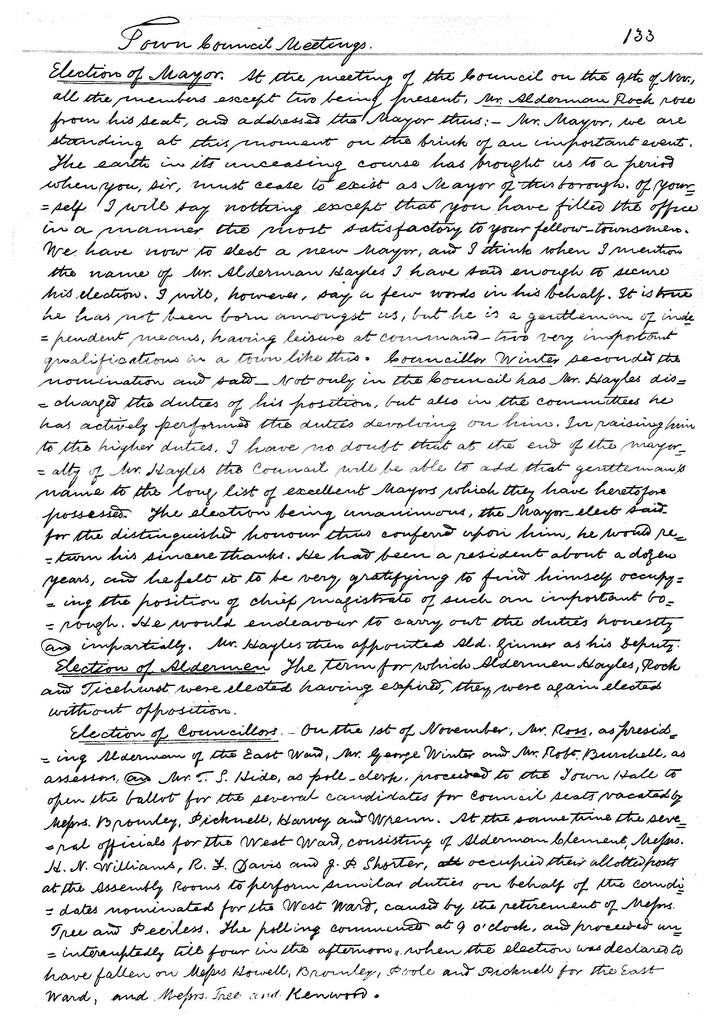 Town Council Meetings. 133
Election of Mayor. At the meeting of the Council on the 9th of Nov.,
all the members except two being present, Mr. Alderman Rock rose
from his seat, and addressed the Mayor thus:- Mr. Mayor, we are
standing at this moment on the brink of an important event.
The earth in its unceasing course has brought us to a period
when you, sir, must cease to exist as Mayor of this borough. Of your-
=self I will say nothing except that you have filled the office
in a manner the most satisfactory to your fellow-townsmen.
We have now to elect a new Mayor, and I think when I mention
the name of Mr. Alderman Hayles I have said enough to secure
his election. I will, however, say a few words in his behalf. It is true
he has not been born amongst us, but he is a gentleman of inde
=pendent means, having leisure at command - two very important
qualifications in a town like this. Councillor Winter seconded the
nomination and said - Not only in the Council has Mr. Hayles dis=
=charged the duties of his position, but also in the committees he
has actively performed the duties devolving on him. In raising him
to the higher duties, I have no doubt that at the end of the mayor-
=alty of Mr. Hayles the Council will be able to add that gentleman's
name to the long list of excellent Mayors which they have heretofore
possessed. The election being unanimous, the Mayor-elect said
for the distinguished honour thus confered upon him, he would re=
=turn his sincere thanks. He had been a resident about a dozen
years, and he felt it to be very gratifying to find himself occupy=
=ing the position of chief magistrate of such an important bo=
=rough. He would endeavour to carry out the duties honestly
an impartially. Mr. Hayles then appointed Ald. Ginner as his Deputy.
Election of Aldermen The term for which Aldermen Hayles, Rock
and Ticehurst were elected having expired, they were again elected
without opposition.
Election of Councillors. - On the 1st of November, Mr. Ross, as presid=
=ing Alderman of the East Ward, Mr. George Winter and Mr. Robt. Burchell, as
assessors, an Mr. T. S. Hide, as poll-clerk, proceeded to the Town Hall to
open the ballot for the several candidates for Council seats vacated by
Messrs. Bromley, Picknell, Harvey and Wrenn. At the same time the seve=
=ral officials for the West Ward, consisting of Alderman Clement, Messrs.
H. N. Williams, R. F. Davis and J. P. Shorter, occupied their allotted posts
at the Assembly Rooms to perform similar duties on behalf of the candi
=dates nominated for the West Ward, caused by the retirement of Messrs.
Tree and Peerless. The polling commenced at 9 o'clock, and proceeded un=
=interruptedly till four in the afternoon, when the election was declared to
have fallen on Messrs Howell, Bromley, Poole and Picknell for the East
Ward, and Messrs. Tree and Kenwood.